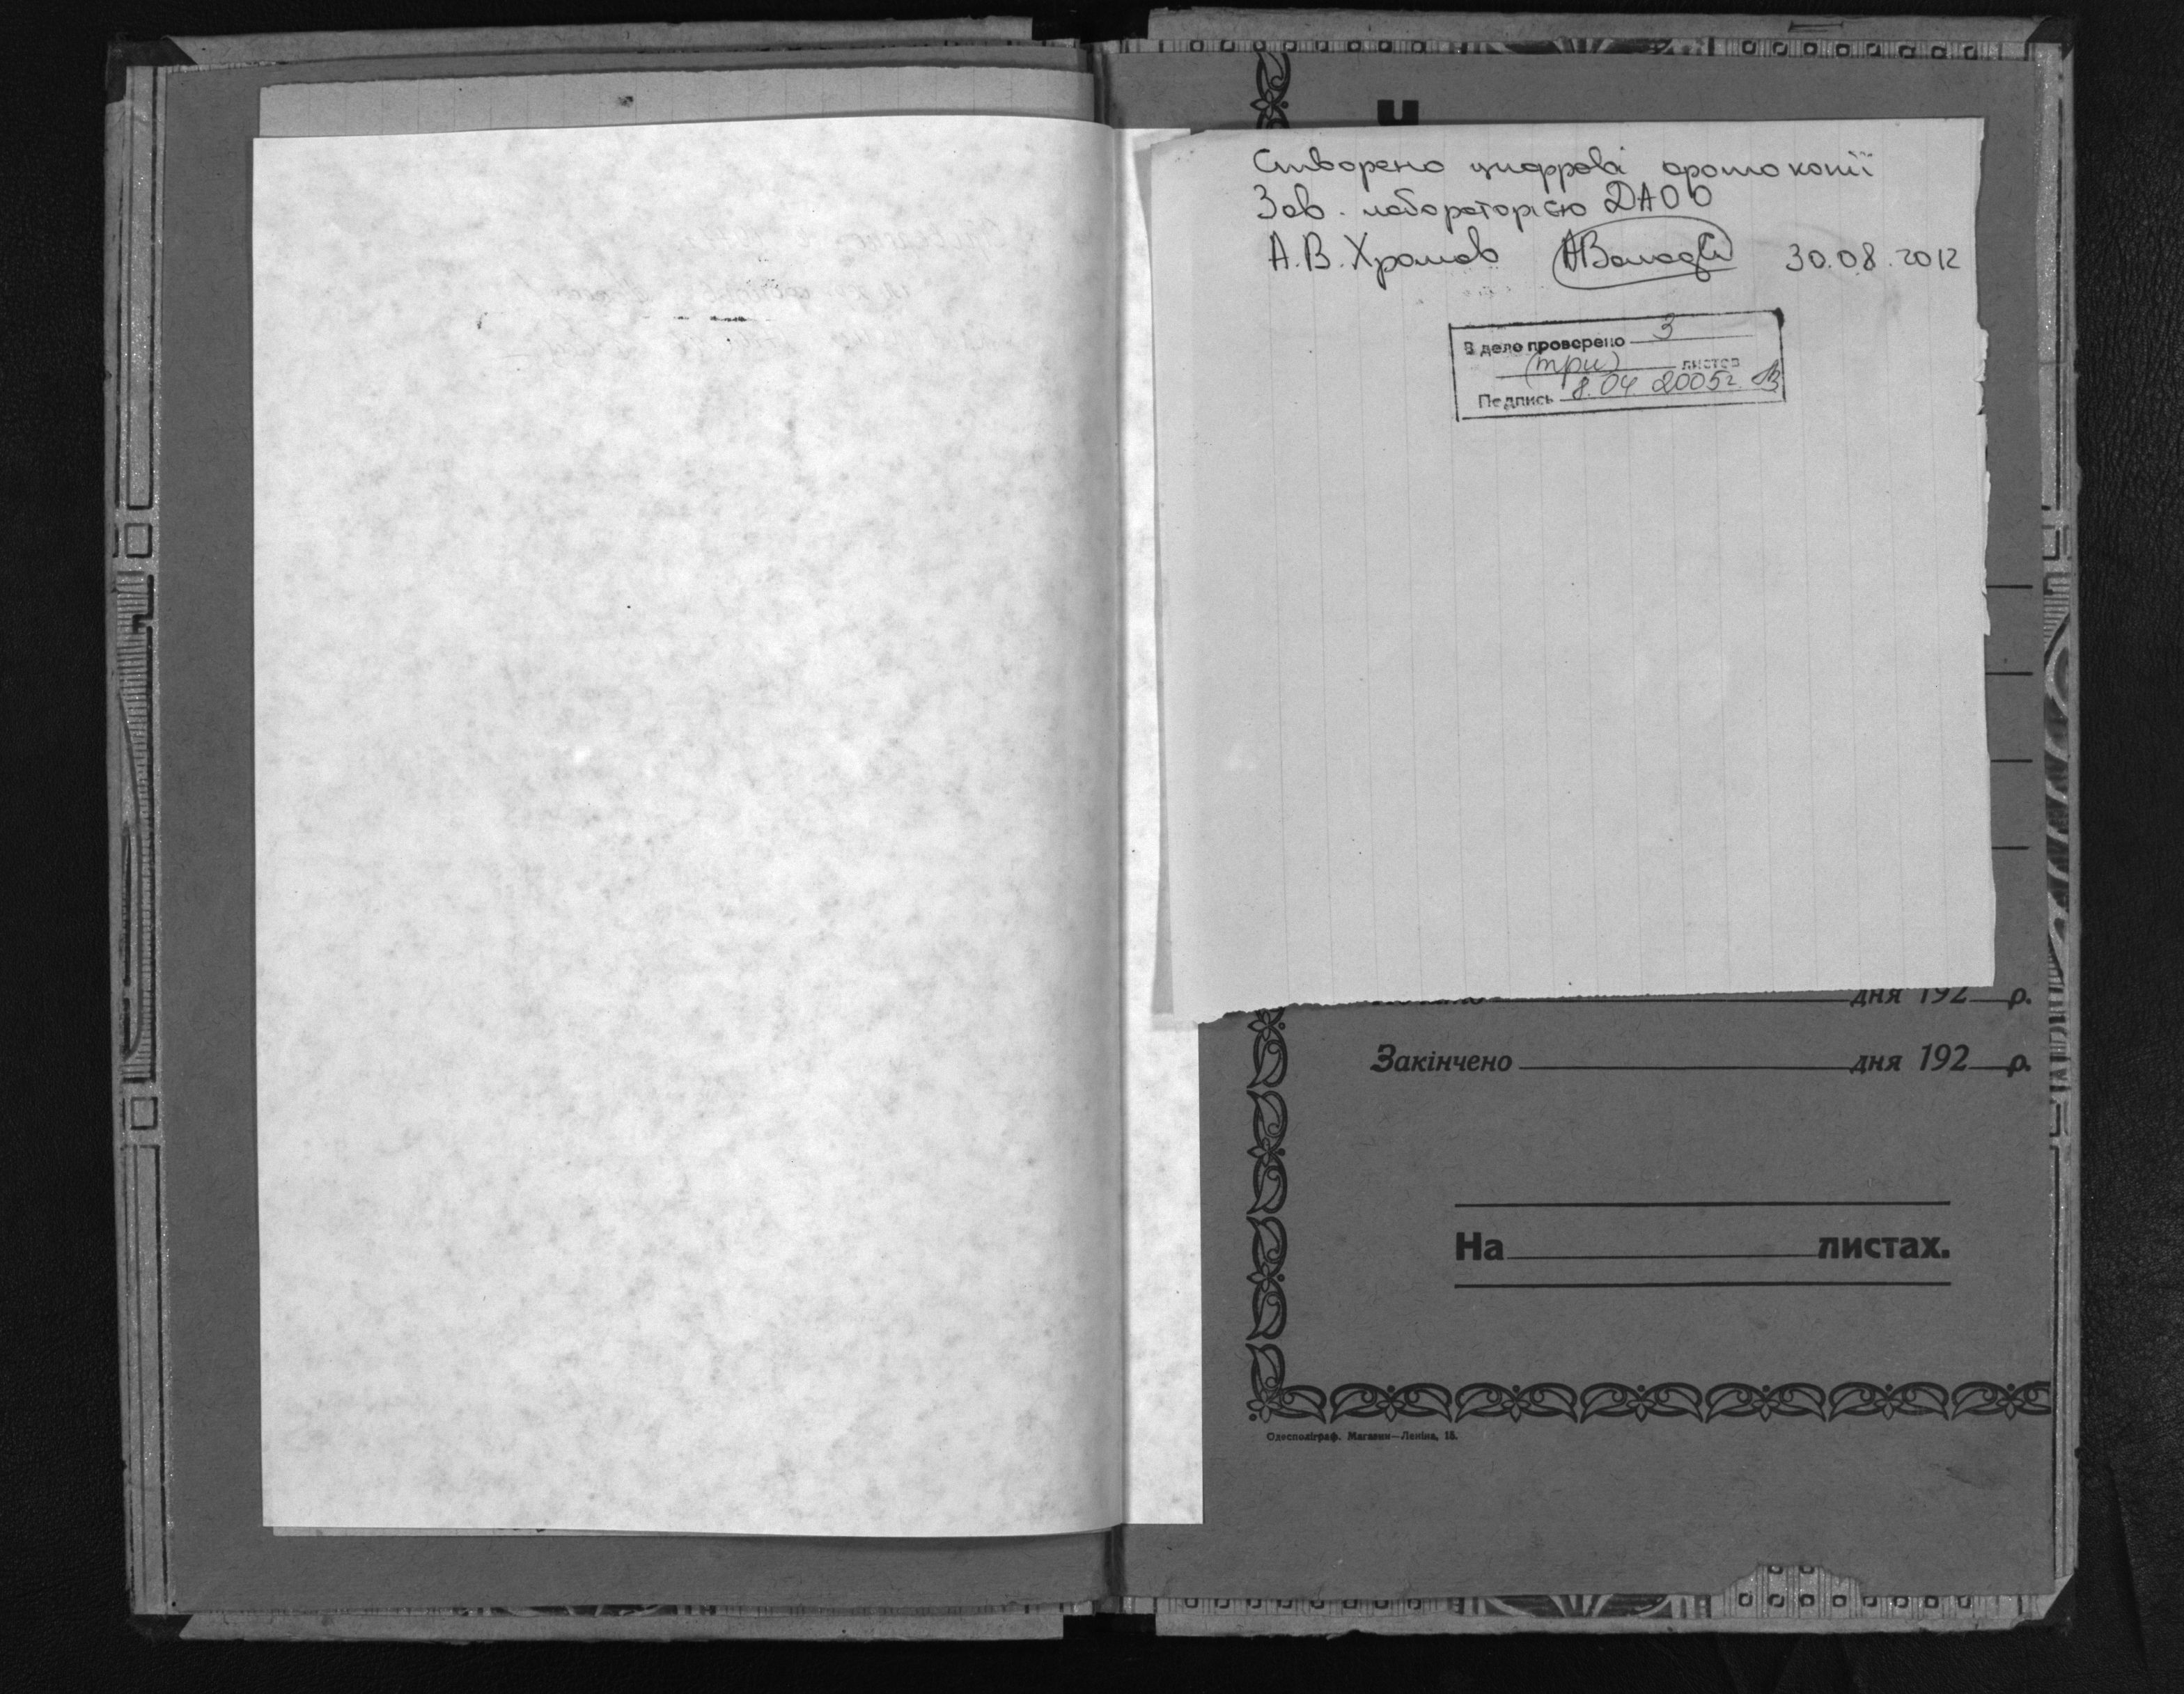 Створено цифрові фотокопії
Зав. лабораторією ДАОО
А.В. Хромов 30.08.2012
В дело проверено 3
(три) листов
Подпись 8.04 2005г.
дня 192 р.
Закінчено дня 192 р.
На листах.
Одесполіграф. Магазин—Леніна, 15.